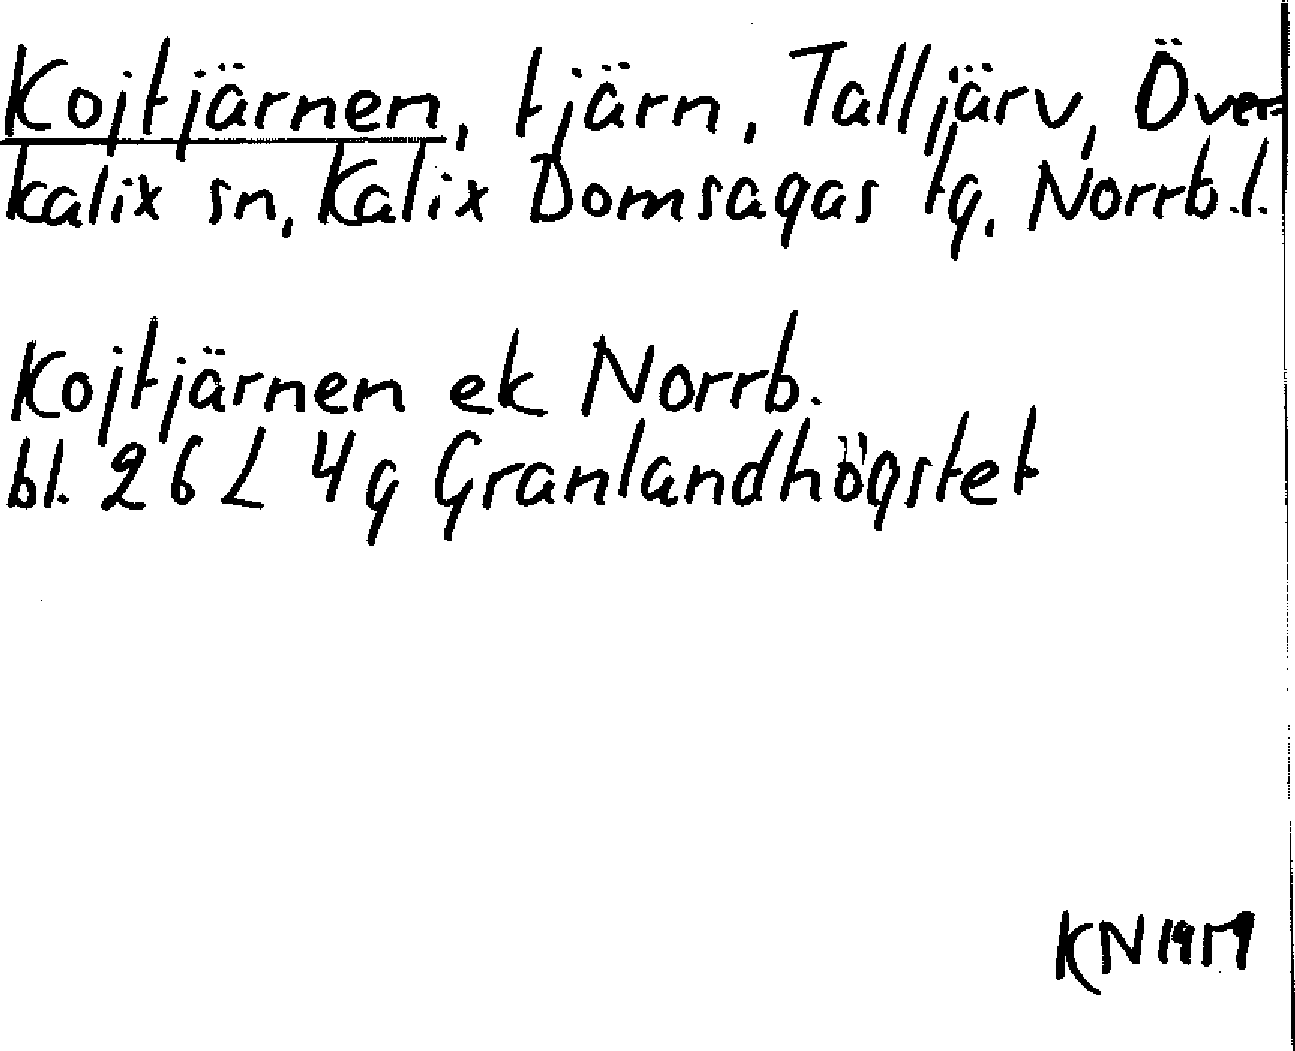 Kojtjärnen, tjärn, Talljärv, Över-
kalix sn, Kalix Domsagas tg. Norrb.l.
Kojtjärnen ek Norrb.
bl. 26 L 4g Granlandhögstet
KN